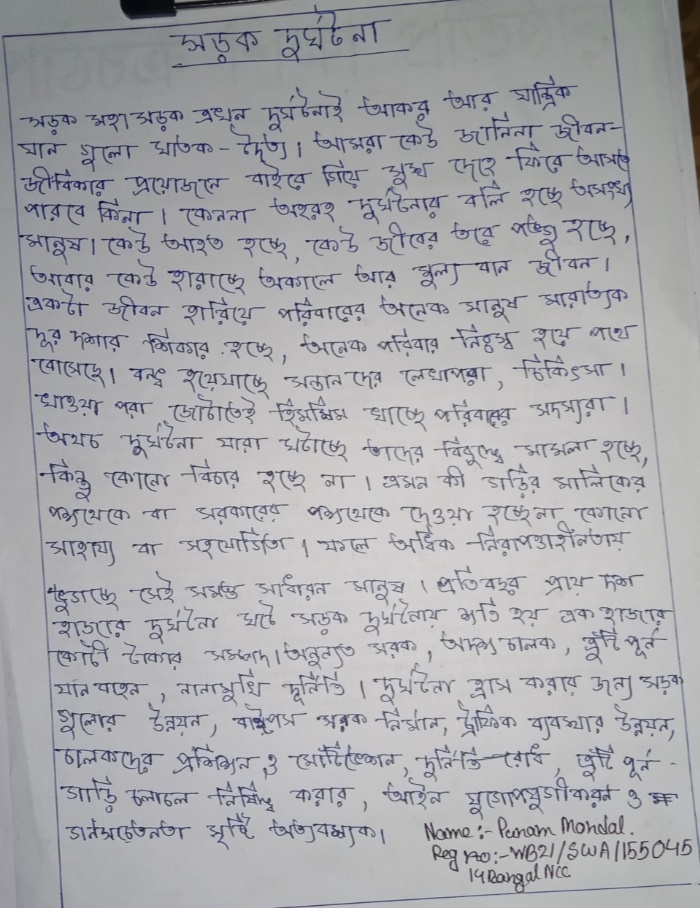 সড়ক দুর্ঘটনা
সড়ক মহাসড়ক এখন দুর্ঘটনাই আকর আর যান্ত্রিক
যান গুলো ঘাতক - দৈত্য। আমরা কেউ জানিনা জীবন-
জীবিকার প্রয়োজনে বাইরে গিয়ে সুস্থ দেহে ফিরে আসতে
পারবে কিনা। কেননা অহরহ দুর্ঘটনার বলি হচ্ছে অসংখ্য
মানুষ। কেউ আহত হচ্ছে, কেউ জীবের তরে পঙ্গু হচ্ছে,
আবার কেউ হারাচ্ছে অকালে আর মুল্য বান জীবন।
একটা জীবন হারিয়ে পরিবারের অনেক মানুষ মারাত্যক
দূর দশার শিকার হচ্ছে, অনেক পরিবার নিঃস্ব হয়ে পথে
বোসেছে। বন্ধ হয়েযাচ্ছে সন্তান দের লেখাপরা, চিকিৎসা।
খাওয়া পরা জোটাতেই হিমশিম খাচ্ছে পরিবারের সদস্যরা।
অথচ দুর্ঘটনা যারা ঘটাচ্ছে তাদের বিরুদ্ধে মামলা হচ্ছে,
কিন্তু কোনো বিচার হচ্ছে না। এমন কী গাড়ির মালিকের
পক্ষথেকে বা সরকারের পক্ষথেকে দেওয়া হচ্ছেনা কোনো
সাহায্য বা সহযোগিতা। ফলে অধিক নিরাপত্তাহীনতায়
ভুগছে সেই সমস্ত সাধারন মানুষ। প্রতিবছর প্রায় দশ
হাজারে দুর্ঘটনা ঘটে সড়ক দুর্ঘটনায় ক্ষতি হয় এক হাজার
কোটী টাকার সম্পদ। অনুন্নত সরক, অদক্ষ চালক, ত্রুটি পূর্ন
যানবাহন, নানামুখি দুর্নিতি। দুর্ঘটনা হ্রাস করার জন্য সড়ক
গুলোর উন্নয়ন, বাইপাস সরক নির্মান, ট্রাফিক ব্যবস্থার উন্নয়ন,
চালকদের প্রশিক্ষন ও মোটিভেশন, দুর্নিতি রোধ, ত্রুটি পূর্ন -
গাড়ি চলাচল নিষিদ্ধ করার, আইন যুগোপযুগীকরন ও
জনসচেতনতা সৃষ্টি অত্যবশ্যক।
Name:- Punam Mondal.
Reg no:- WB21/SWA/155045
14 Bangal NCC